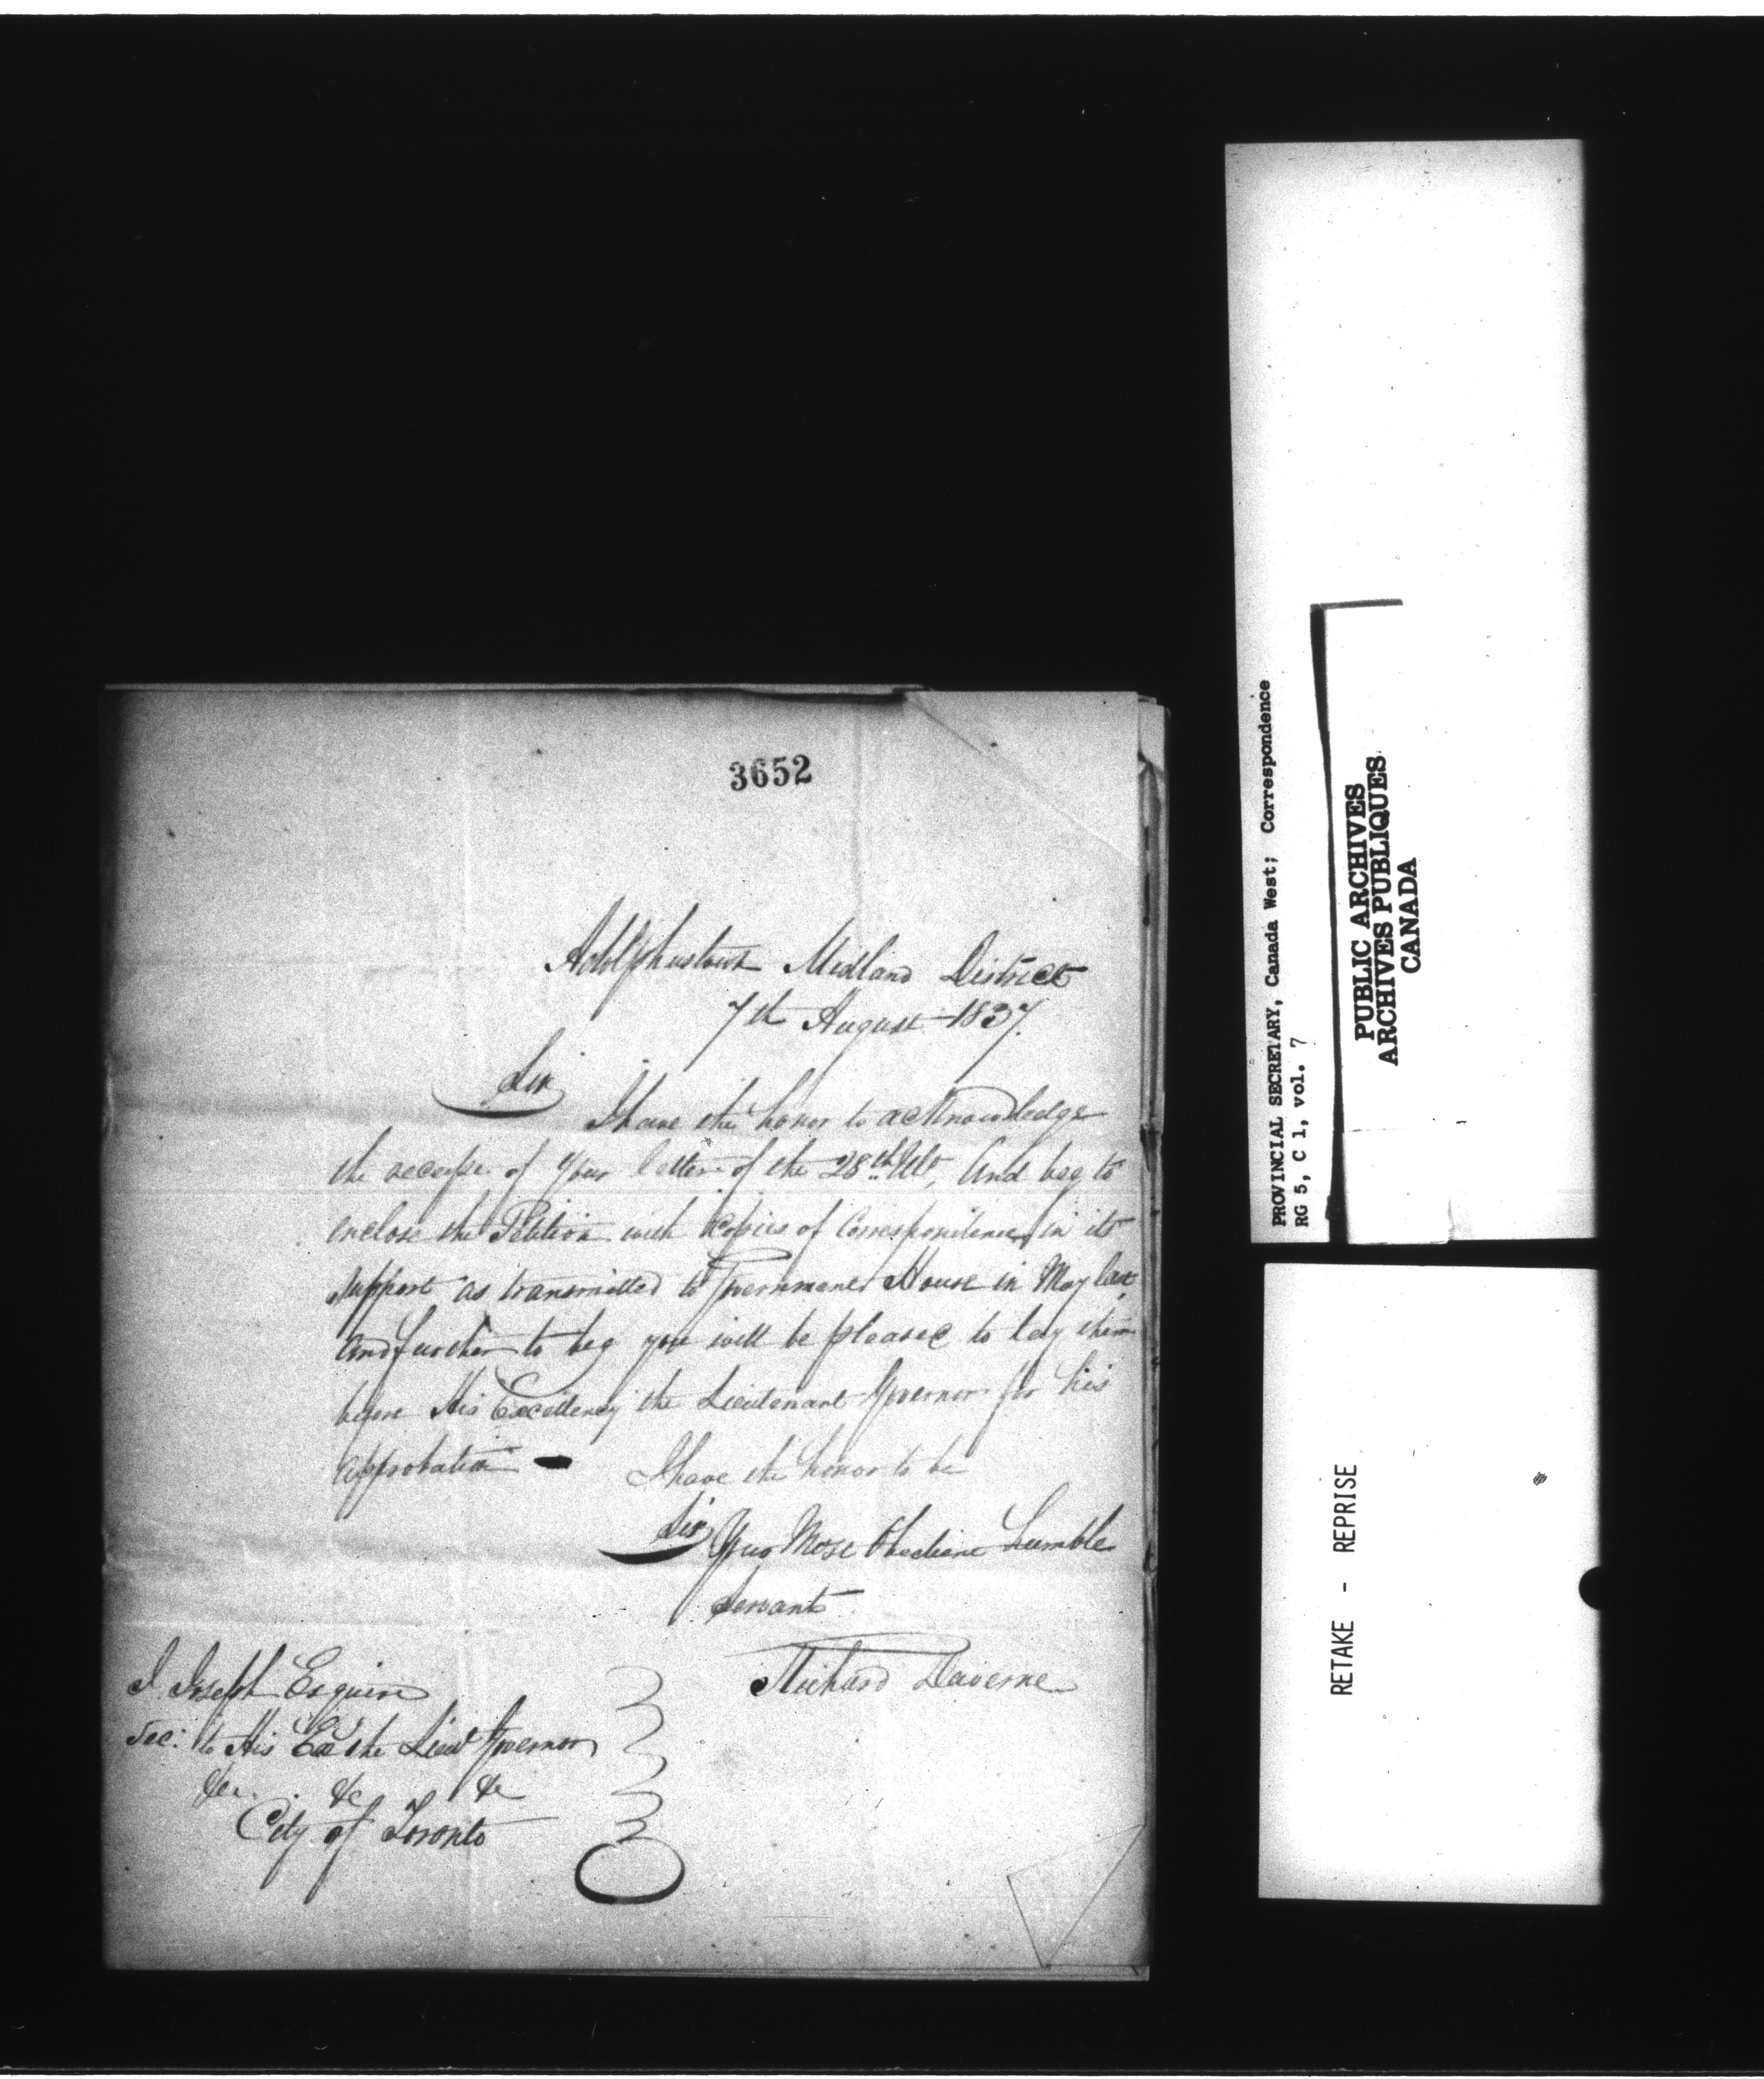 3652
Adolphustown Midland District
7th August 1837.
Sir
I have the honor to acknowledge
the receipt of your letter of the 28th Ulto, And beg to
enclose the Petition with Copies of Correspondence in its
support as transmitted to Government House in May last,
and further to beg you will be pleased to lay them
before His Excellency the Lieutenant Governor for his
approbation —
I have the honor to be
Sir Your Most Obedient Humble
Servant
Richard Daverne
J. Joseph Esquire
Sec: to His Ex the Lieut Governor
&c. &c &c
City of Toronto
PROVINCIAL SECRETARY, Canada West; Correspondence
RG 5, C 1, vol. 7
PUBLIC ARCHIVES
ARCHIVES PUBLIQUES
CANADA
RETAKE - REPRISE